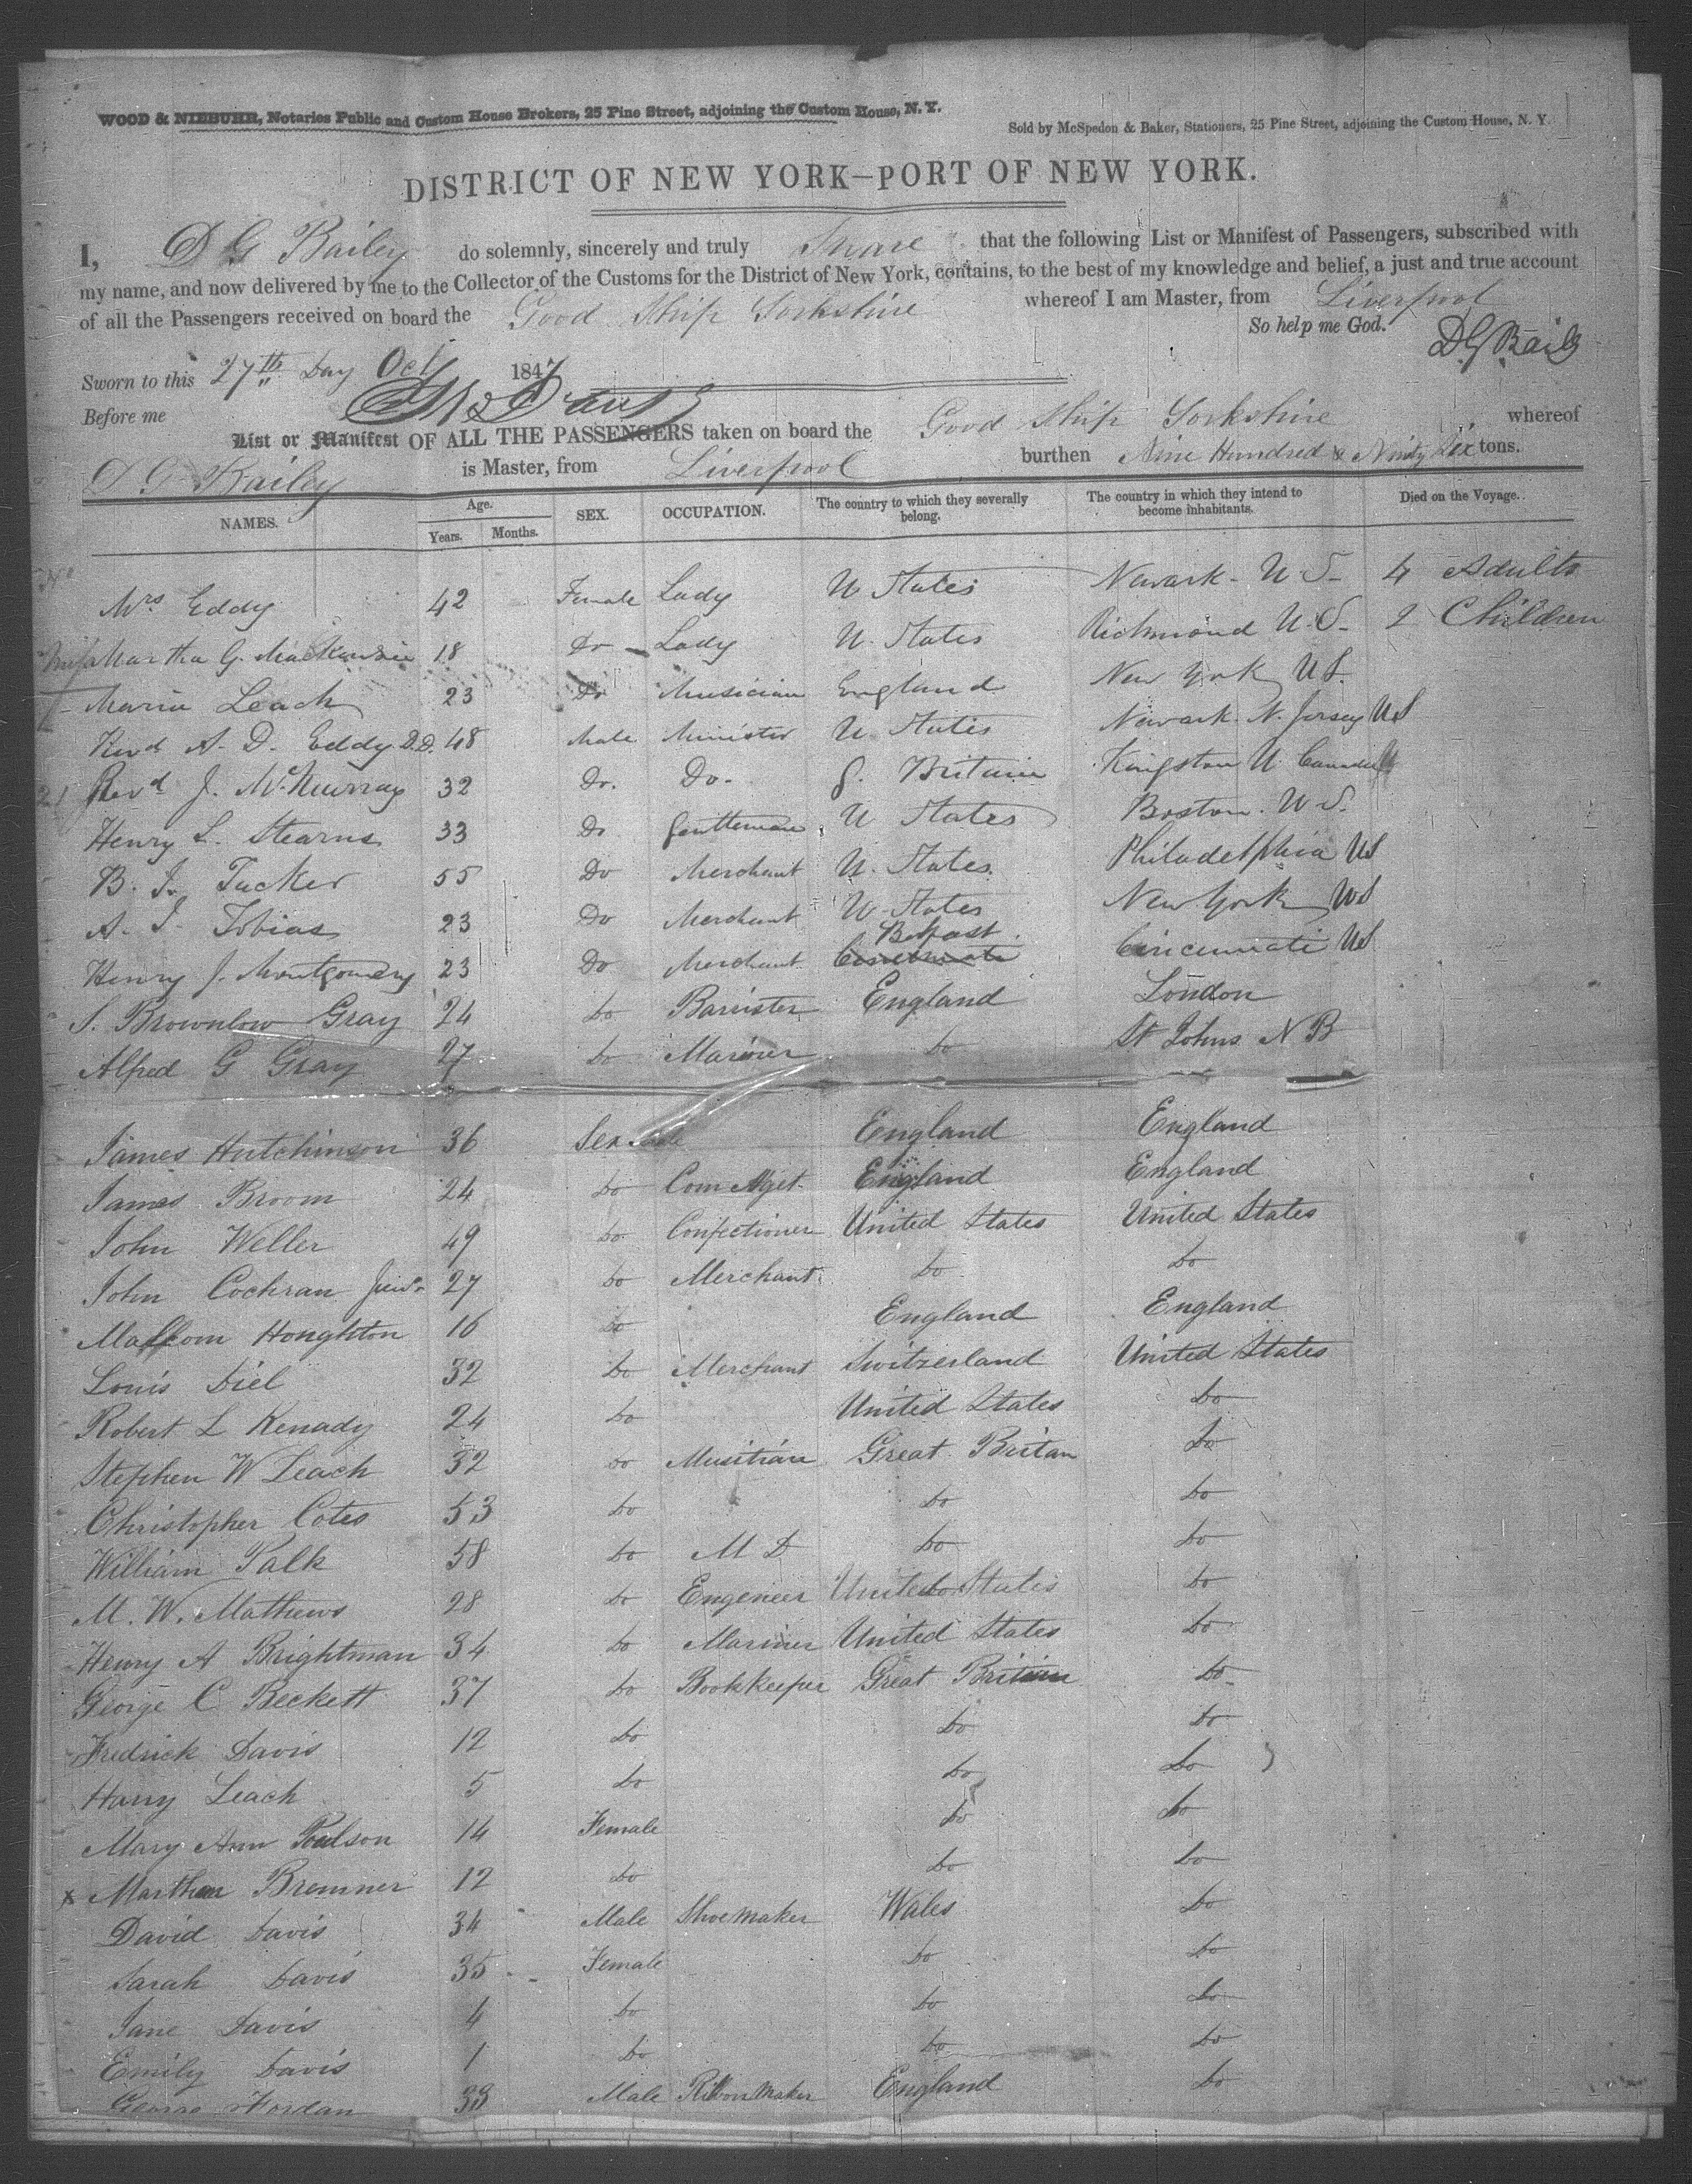 WOOD & NIEBUHR, Notaries Public and Custom House Brokers, 25 Pine Street, adjoining the Custom House, N. Y.
Sold by McSpedon & Baker, Stationers, 25 Pine Street, adjoining the Custom House, N. Y.
DISTRICT OF NEW YORK—PORT OF NEW YORK.
I, D G Bailey do solemnly, sincerely and truly Swear that the following List or Manifest of Passengers, subscribed with
my name, and now delivered by me to the Collector of the Customs for the District of New York, contains, to the best of my knowledge and belief, a just and true account
of all the Passengers received on board the Good Ship Yorkshire whereof I am Master, from Liverpool
So help me God. D G Bailey
Sworn to this 27th Day Oct 1847
Before me
List or Manifest OF ALL THE PASSENGERS taken on board the Good Ship Yorkshire whereof
D G Bailey is Master, from Liverpool burthen Nine Hundred & Ninty Six tons.
NAMES. Age. Years. Months. SEX. OCCUPATION. The country to which they severally belong. The country in which they intend to become inhabitants. Died on the Voyage.
Mrs Eddy 42 Female Lady U States Newark - U S - 4 Adults
Miss Martha G. Mackenzie 18 Do Lady U. States Richmond U.S- 2 Children
Maria Leach 23 Do Musician England New York U S.
Revd A. D. Eddy D.D. 48 Male Minister U. States Newark. N. Jersey US
Revd J. McMurray 32 Do. Do. G. Britain Kingston U. Canada
Henry L. Stearns 33 Do Gentleman U States Boston. U S.
B. J. Tucker 55 Do Merchant U. States. Philadelphia US
A. I. Tobias 23 Do Merchant U. States New York US
Henry J. Montgomery 23 Do Merchant Belfast Cincinnati US
S. Brownlow Gray 24 Do Barrister England London
Alfred G Gray 27 Do Mariner Do St Johns N B
James Hutchinson 36 England England
James Broom 24 Do Com Aget. England England
John Weller 49 Do Confectioner United States United States
John Cochran Junr 27 Do Merchant Do Do
Malcom Houghton 16 Do England England
Louis Diel 32 Do Merchant Switzerland United States
Robert L Kenady 24 Do United States Do
Stephen W Leach 32 Do Musitian Great Britan Do
Christopher Cotes 53 Do Do Do
William Palk 58 Do M D Do Do
M. W. Mathews 28 Do Engeneer United States Do
Henry A Brightman 34 Do Mariner United States Do
George C Beckett 37 Do Bookkeeper Great Britain Do
Fredrick Davis 12 Do Do Do
Harry Leach 5 Do Do Do
Mary Ann Poulson 14 Female Do Do
x Martha Bremner 12 Do Do Do
David Davis 34 Male Shoemaker Wales Do
Sarah Davis 35 Female Do Do
Jane Davis 4 Do Do Do
Emily Davis 1 Do Do Do
George 33 Male Ribbon Maker England Do